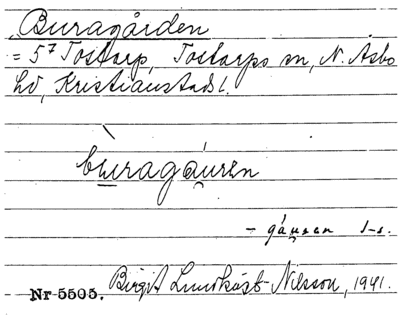 Buragården
= 5⁷ Tostarp, Tostarps sn, N. Åsbo
hd, Kristianstads l.
buragáu̯rən
- gáu̯ran s-s.
Nr 5505. Birgit Lundkvist-Nilsson, 1941.